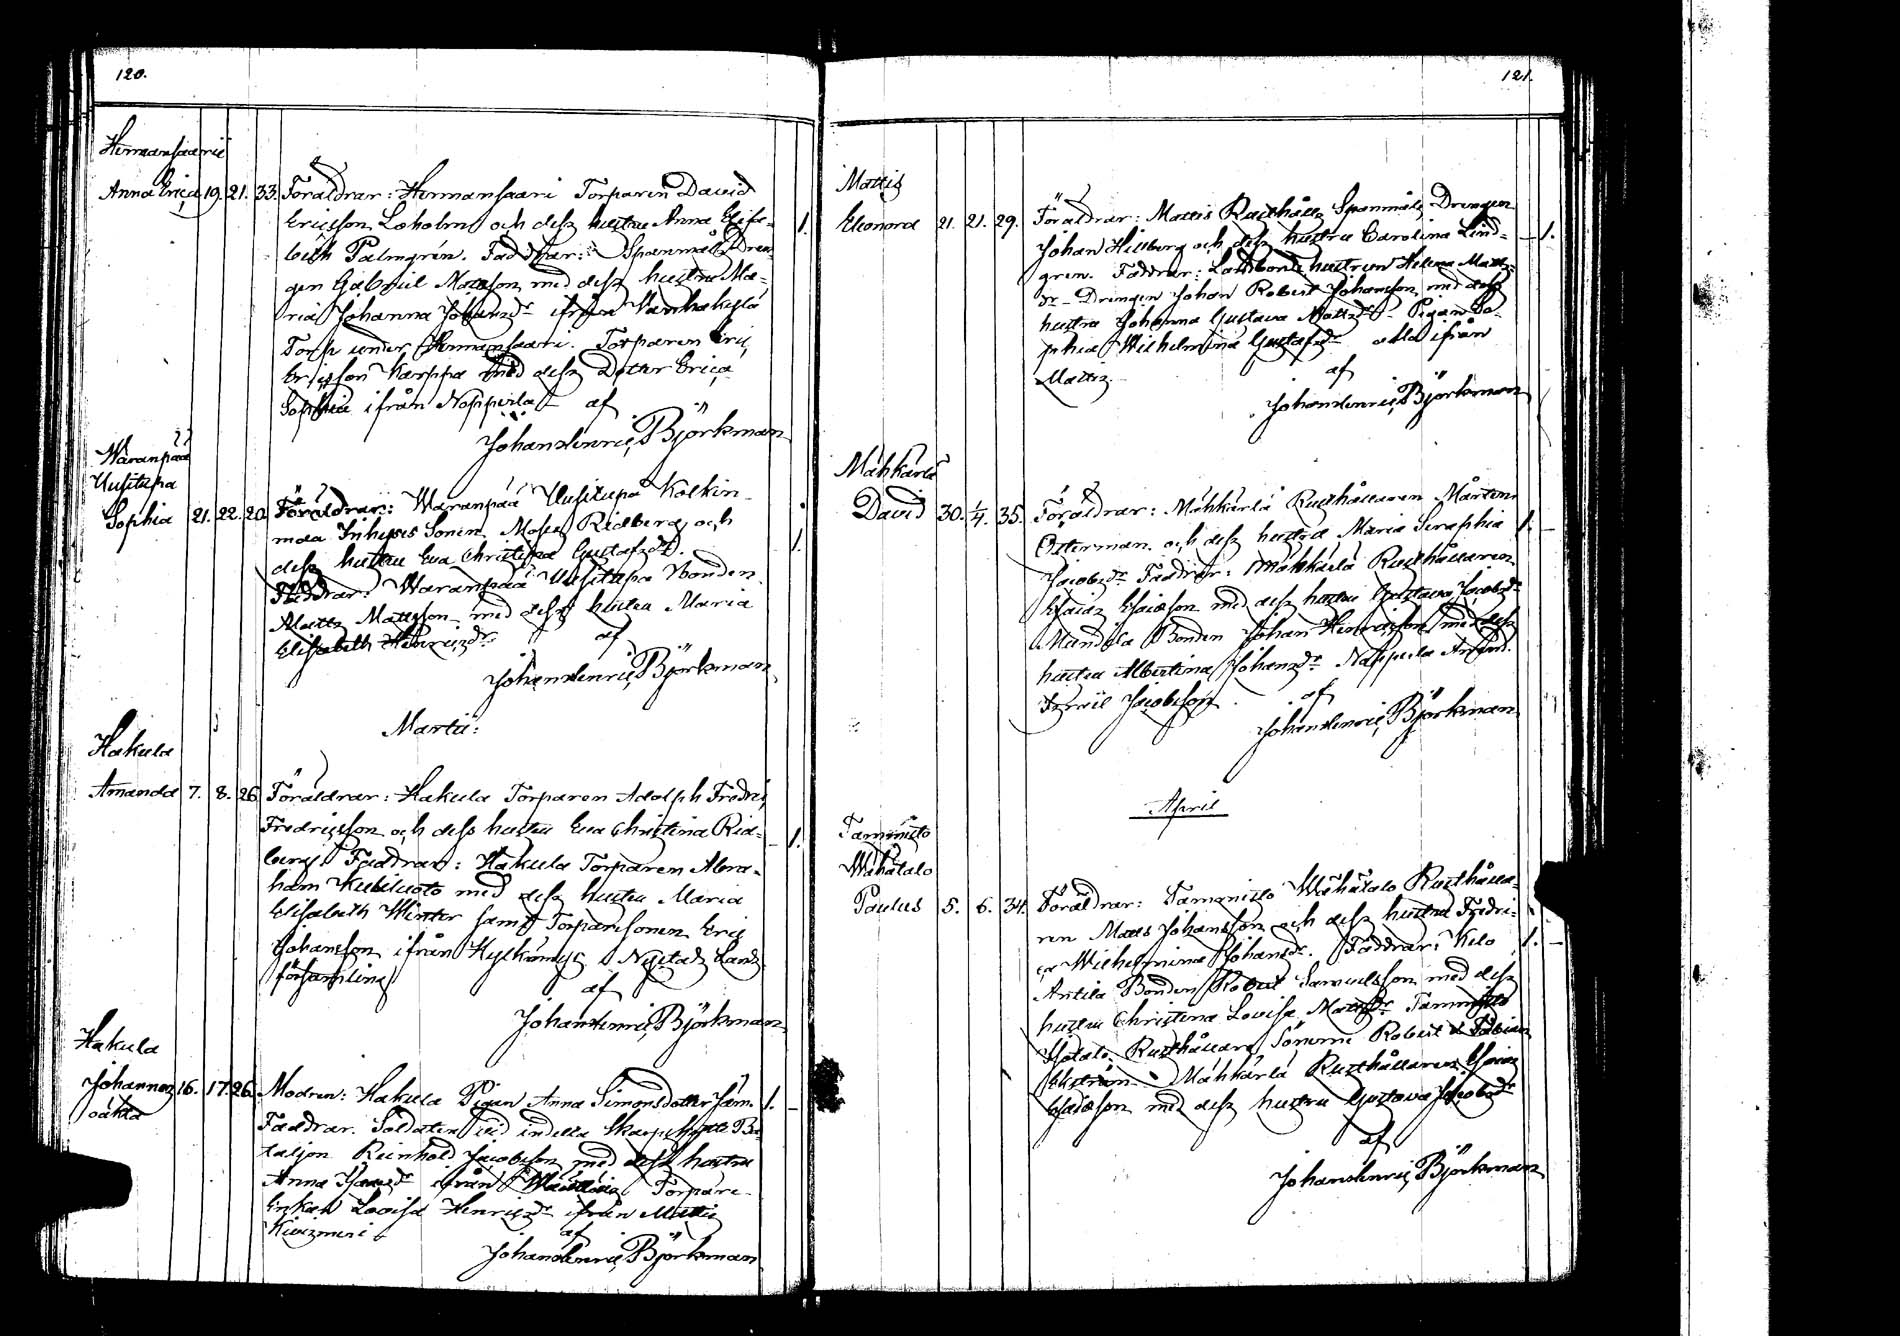 120.
Hermansaari
Anna Erica 19. 21. 33. Föräldrar: Hermansaari Torparen David
Ericsson Loholm och dess hustru Anna Elisa-
beth Palmgrén. Faddrar: Spanmåls Dren-
gen Gabriel Matsson med dess hustru Ma-
ria Johanna Johansdr ifrån
Torp under Hermansaari. Torparen Eric
Ericsson Karppa med dess Dotter Erica
Sophia ifrån Nappila af
Johan Henric Björkman
1.
Waranpää
Uusitupa
Sophia 21. 22. 20. Föräldrar: Waranpää Uusitupa Kolkin-
maa Inhyses Sonen Moses Ridberg och
dess hustru Eva Christina Gustafsdr.
Faddrar: Waranpää Uusitupa Bonden
Matts Mattsson med dess hustru Maria
Elisabeth Henricsdr. af
Johan Henric Björkman
1.
Martii:
Hakula
Amanda 7. 8. 26. Föräldrar: Hakula Torparen Adolph Fredric
Fredricsson och dess hustru Eva Christina Rid-
berg. Faddrar: Hakula Torparen Abra-
ham med dess hustru Maria
Elisabeth Winter samt Torparesonen Eric
Johansson ifrån i Nystads Lands
församling
af
Johan Henric Björkman
1.
Hakula
Johannes 16. 17. 26. Modren: Hakula Pigan Anna Simonsdotter
oäkta
Faddrar. Soldaten vid indelta Skarpskytte Ba-
taljon Reinhold Jacobsson med dess hustru
Anna ifrån Torpare-
Enkan Lovisa Henricsdr ifrån Mattis
Kivizmeri
af
Johan Henric Björkman
1.
121.
Mattis
Eleonora 21. 21. 29. Föräldrar: Mattis Rusthålls Spanmåls Drengen
Johan Hillberg och dess hustru Carolina Lind-
gren. Faddrar: Landbonde hustrun Helena Matts-
dr - Drengen Johan Robert Johansson med dess
hustru Johanna Gustava Mattsdr - Pigan So-
phia Wilhelmina Gustafsdr alla ifrån
Mattis.
af
Johan Henric Björkman
1.
Mähkärlä
David 30. 1/4. 35. Föräldrar: Mähkärlä Rusthållaren Mårten
Österman och dess hustru Maria Seraphia
Jacobsdr Faddrar: Mähkärlä Rusthållaren
Esaias Esaiasson med dess hustru Gustava Jacobsdr
Bonden Johan Henricsson med dess
hustru Albertina Johansdr Nappila
Israël Jacobsson
af
Johan Henric Björkman
1.
April
Tammisto
Wähätalo
Paulus 5. 6. 34. Föräldrar: Tammisto Wähätalo Rusthålla-
ren Matts Johansson och dess hustru Fredri-
ca Wilhelmina Johansdr. Faddrar: Kelo
Antila Bonden Robert Samuelsson med dess
hustru Christina Lovisa Mattsdr Tammisto
Isotalo Rusthållare Sönerne Robert
Ekström. Mähkärlä Rusthållaren Esaias
Esaiasson med dess hustru Gustava Jacobsdr
af
Johan Henric Björkman
1.